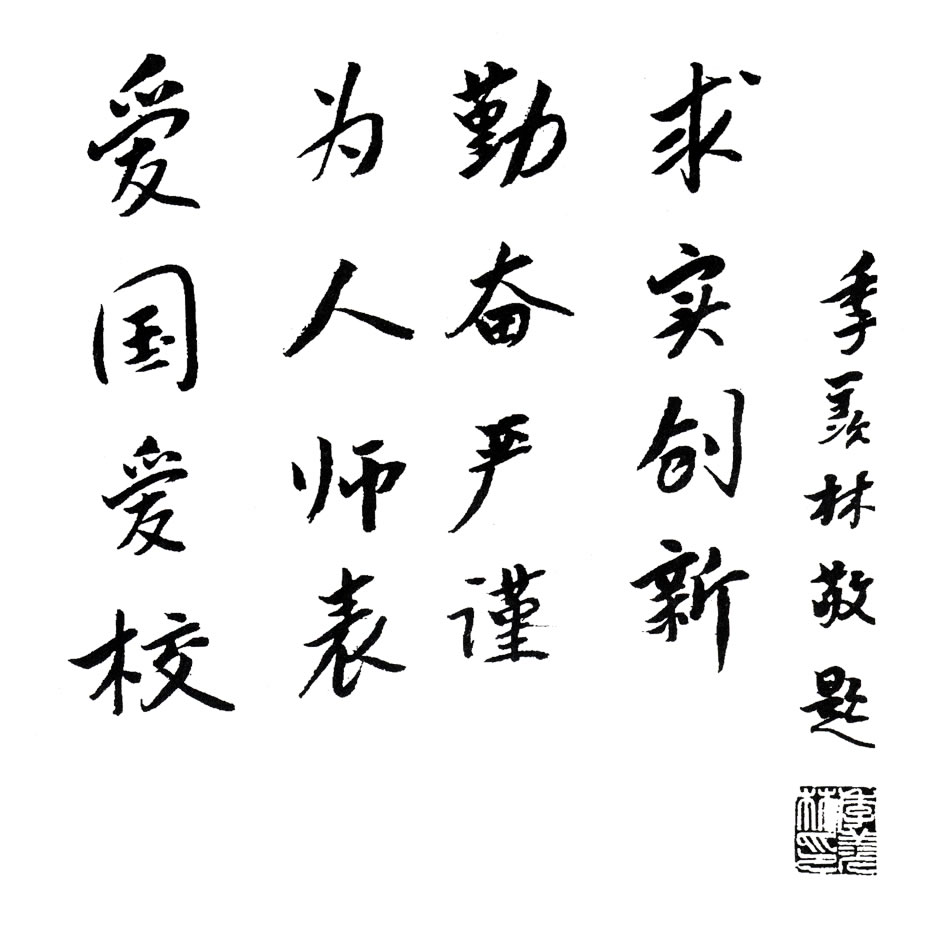 爱国爱校
为人师表
勤奋严谨
求实创新
季羡林敬题
季羡林印